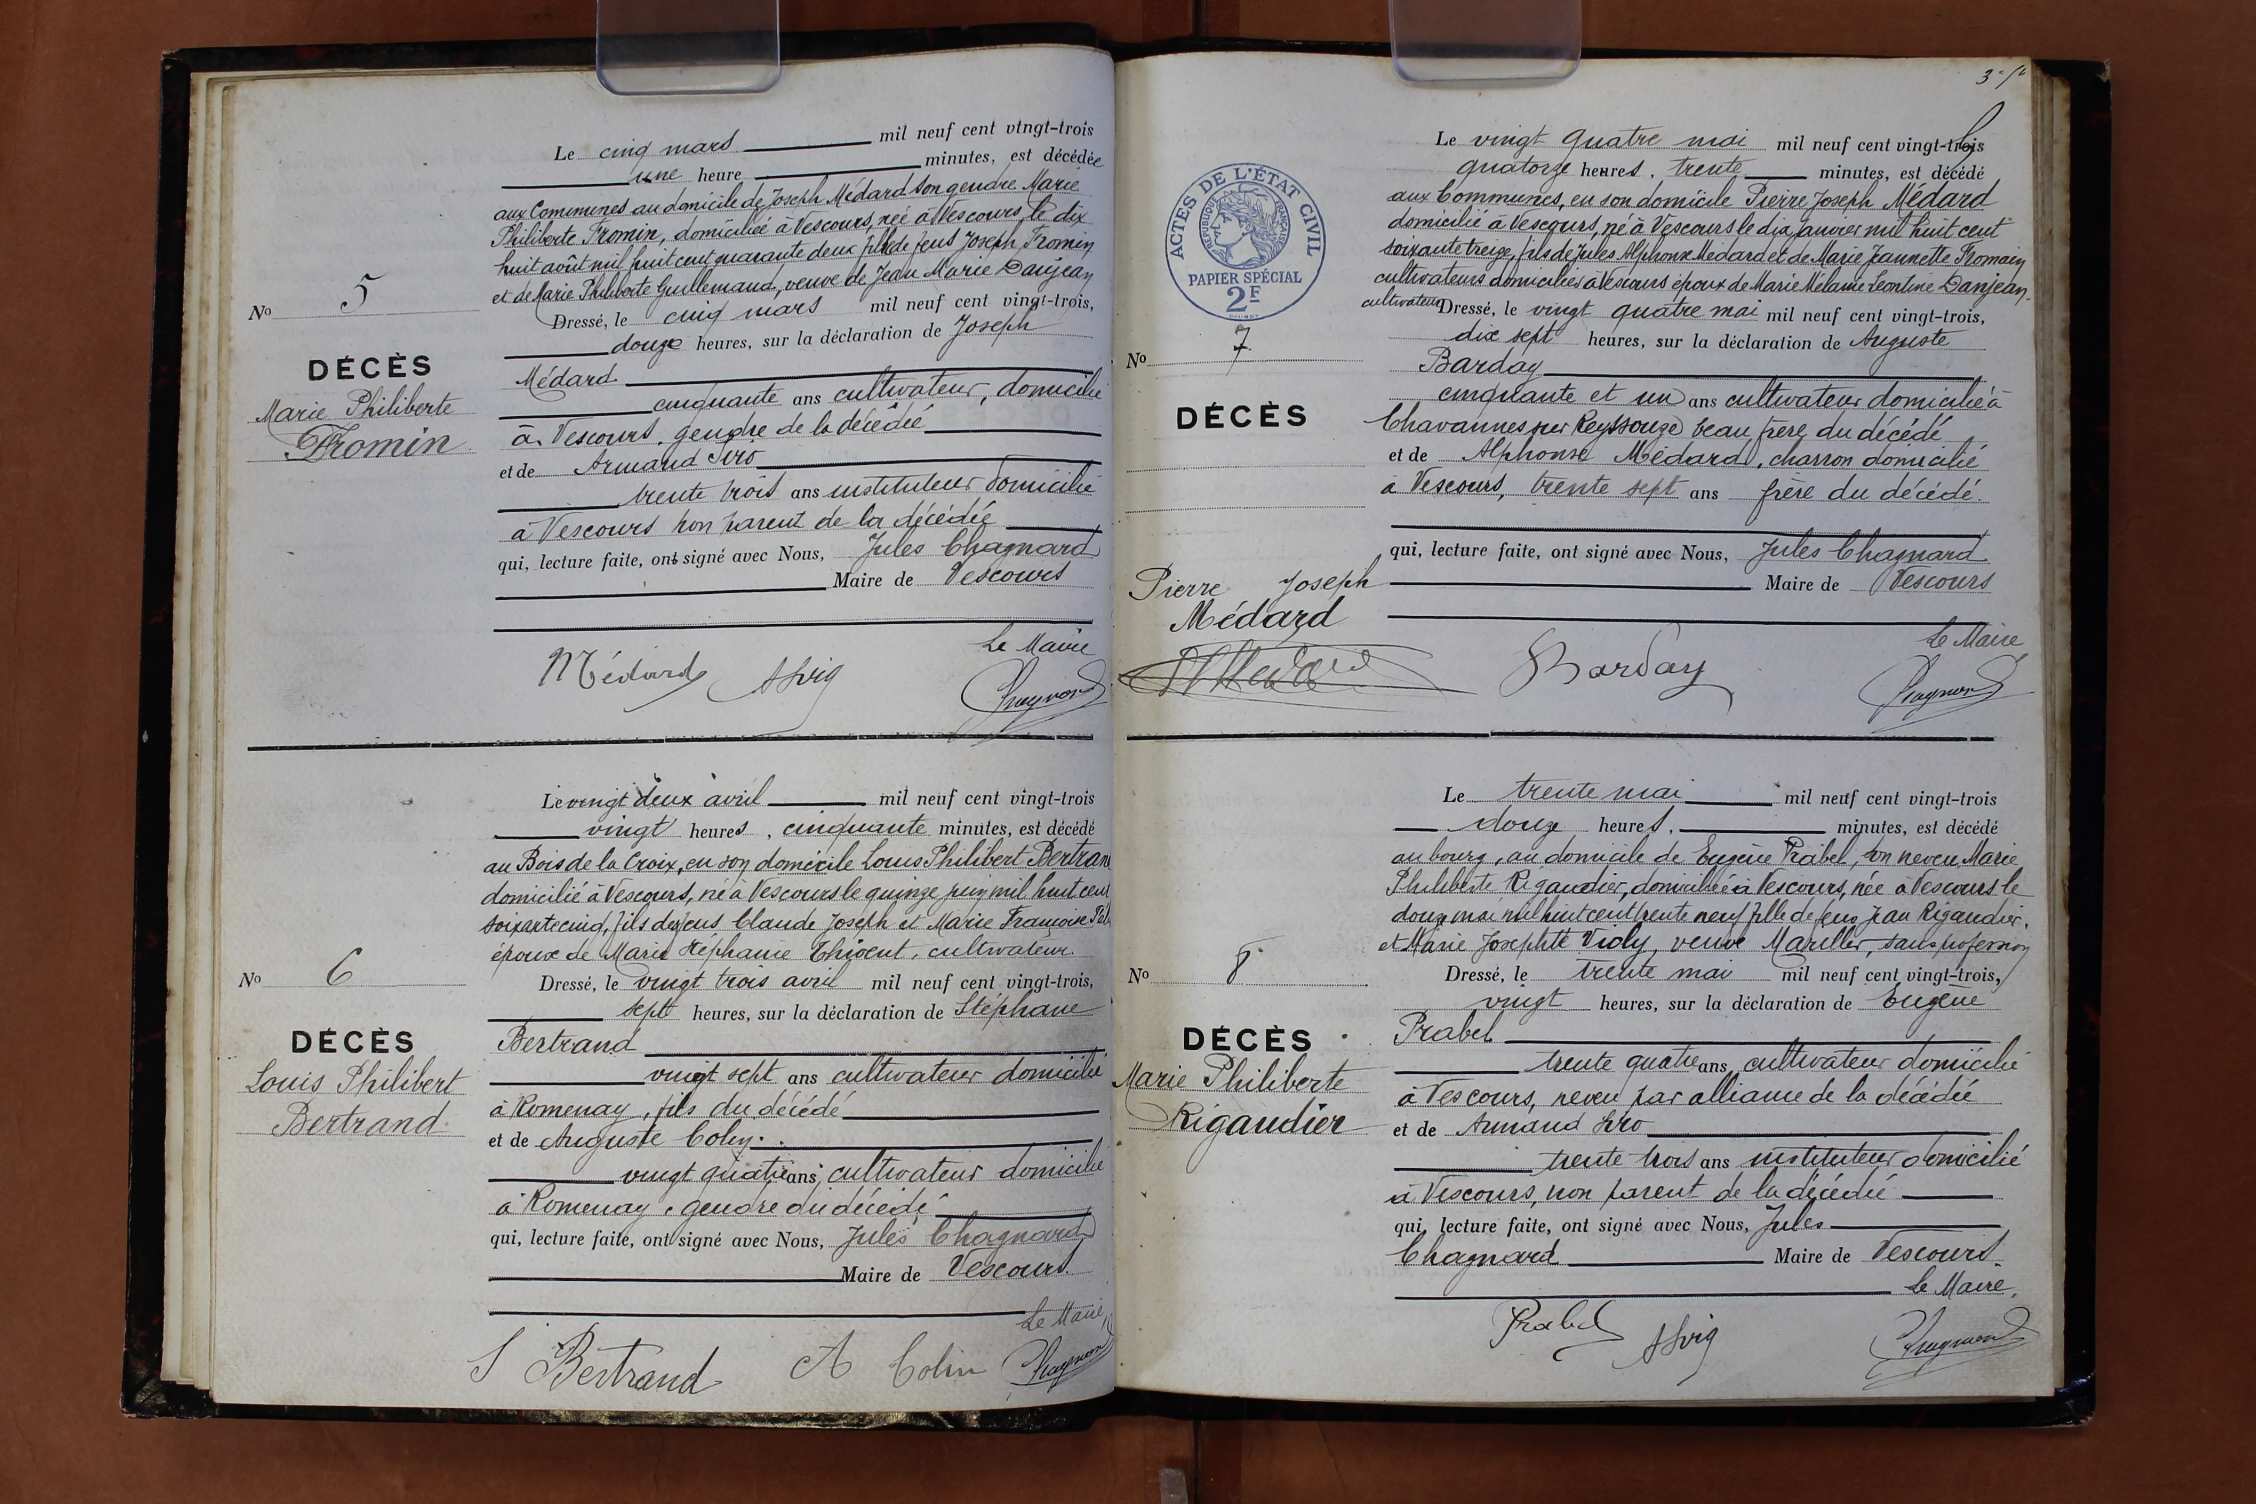 Le cinq mars mil neuf cent vingt-trois
une heure minutes, est décédée
aux Communes au domicile de Joseph Médard son gendre Marie
Philiberte Fromin, domiciliée à Vescours, née à Vescours, le dix
huit août mil huit cent quarante deux fille de feus Joseph Fromin
et de Marie Philiberte Guillemaud, veuve de Jean Marie Danjean
No 5
Dressé, le cinq mars mil neuf cent vingt-trois,
douze heures, sur la déclaration de Joseph
DÉCÈS
Marie Philiberte
Fromin
Médard
cinquante ans cultivateur, domicilié
à Vescours, gendre de la décédée
et de Armand
trente trois ans instituteur domicilié
à Vescours non parent de la décédée
qui, lecture faite, ont signé avec Nous, Jules Chagnard
Maire de Vescours
Le Maire
Médard
Chagnard
Le vingt deux avril mil neuf cent vingt-trois
vingt heures, cinquante minutes, est décédé
au Bois de la Croix, en son domicile Louis Philibert Bertrand
domicilié à Vescours, né à Vescours le quinze juin mil huit cent
soixante cinq, fils de feus Claude Joseph et Marie Françoise
époux de Marie Stéphanie Thivent, cultivateur.
No 6
Dressé, le vingt trois avril mil neuf cent vingt-trois,
sept heures, sur la déclaration de Stéphane
DÉCÈS
Louis Philibert
Bertrand
Bertrand
vingt sept ans cultivateur domicilié
à Romenay, fils du décédé
et de Auguste Colin
vingt quatre ans, cultivateur domicilié
à Romenay, gendre du décédé
qui, lecture faite, ont signé avec Nous, Jules Chagnard
Maire de Vescours
Le Maire,
S Bertrand A Colin Chagnard
Le vingt quatre mai mil neuf cent vingt-trois
quatorze heures, trente minutes, est décédé
aux Communes, en son domicile Pierre Joseph Médard
domicilié à Vescours, né à Vescours le dix janvier mil huit cent
soixante treize, fils de Jules Alphonse Médard et de Marie Jeannette Fromain
cultivateurs domiciliés à Vescours époux de Marie Mélanie Léontine Danjean.
ACTES DE L'ÉTAT CIVIL
RÉPUBLIQUE FRANÇAISE
PAPIER SPÉCIAL
2F
cultivateur Dressé, le vingt quatre mai mil neuf cent vingt-trois,
No 7
dix sept heures, sur la déclaration de Auguste
DÉCÈS
Pierre Joseph
Médard
Barday
cinquante et un ans cultivateur domicilié à
Chavannes sur Reyssouze beau frère du décédé
et de Alphonse Médard, charron domicilié
à Vescours, trente sept ans frère du décédé.
qui, lecture faite, ont signé avec Nous, Jules Chagnard
Maire de Vescours
Le Maire
Barday
Chagnard
Le trente mai mil neuf cent vingt-trois
douze heures, minutes, est décédé
au bourg, au domicile de Eugène Prabel, son neveu, Marie
Philiberte Rigaudier, domiciliée à Vescours, née à Vescours le
douze mai mil huit cent trente neuf fille de feus Jean Rigaudier,
et Marie Josephte Violy, veuve Mariller, sans profession
No 8
Dressé, le trente mai mil neuf cent vingt-trois,
vingt heures, sur la déclaration de Eugène
DÉCÈS
Marie Philiberte
Rigaudier
Prabel
trente quatre ans, cultivateur domicilié
à Vescours, neveu par alliance de la décédée
et de Armand
trente trois ans instituteur domicilié
à Vescours, non parent de la décédée
qui, lecture faite, ont signé avec Nous, Jules
Chagnard Maire de Vescours.
Le Maire,
Prabel
Chagnard